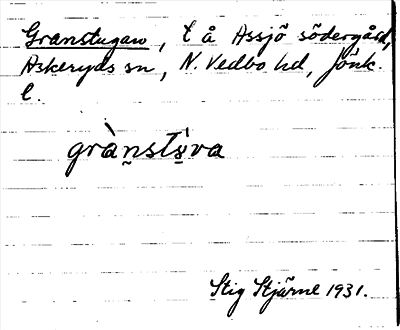 Granstugan, t å Assjö södergård,
Askeryds sn, N. Vedbo hd, Jönk.
l.
grànstʉ̀va
Stig Stjärne 1931.